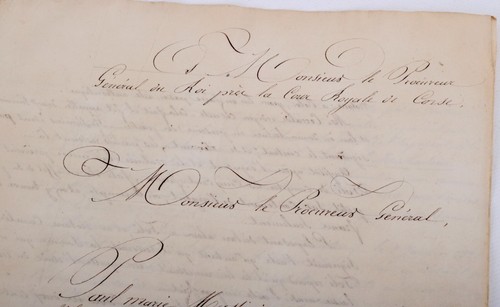 A Monsieur le Procureur
Général du Roi près la Cour Royale de Corse.
Monsieur le Procureur Général,
Paul marie